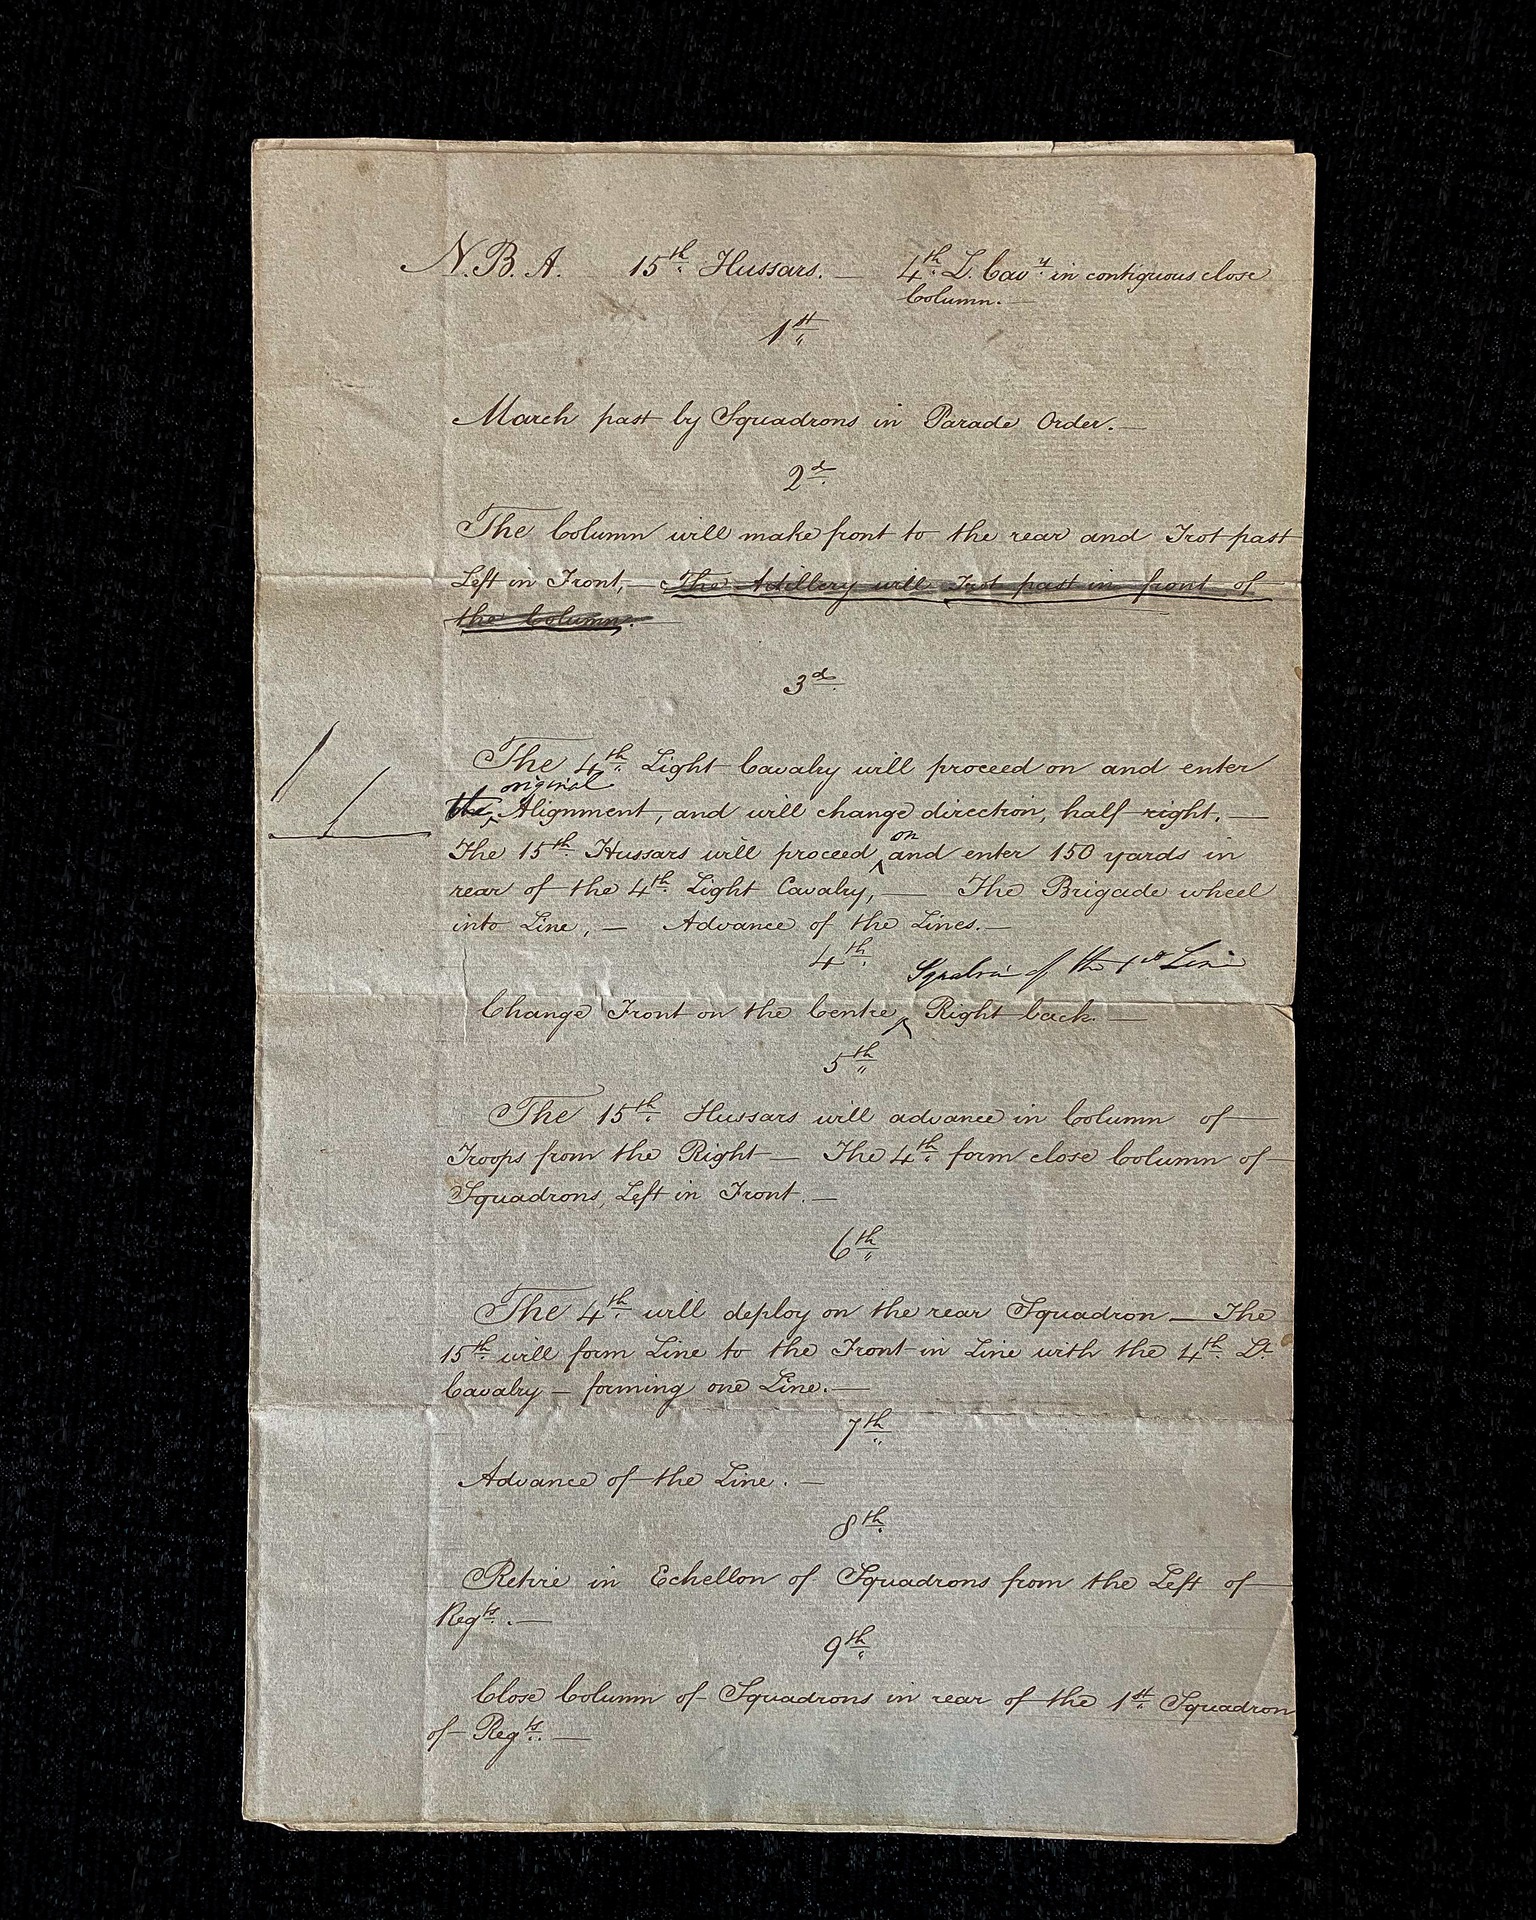 N. B. A. 15th Hussars. — 4th L. Cavy in contiguous close
Column. —
1st
March past by Squadrons in Parade Order. —
2d
The Column will make front to the rear and Trot past
Left in Front, — The Artillery will Trot past in front of
the Column.
3d
The 4th Light Cavalry will proceed on and enter
original
the Alignment, and will change direction, half right. —
on
The 15th Hussars will proceed and enter 150 yards in
rear of the 4th Light Cavalry, — The Brigade wheel
into Line, — Advance of the Lines. —
4th
Squadron of the 1st Line
Change Front on the Centre Right back. —
5th
The 15th Hussars will advance in Column of
Troops from the Right — The 4th form close Column of
Squadrons, Left in Front. —
6th
The 4th will deploy on the rear Squadron — The
15th will form Line to the Front in Line with the 4th Lt
Cavalry — forming one Line. —
7th
Advance of the Line. —
8th
Retire in Echellon of Squadrons from the Left of
Regts. —
9th
Close Column of Squadrons in rear of the 1st Squadron
of Regts. —